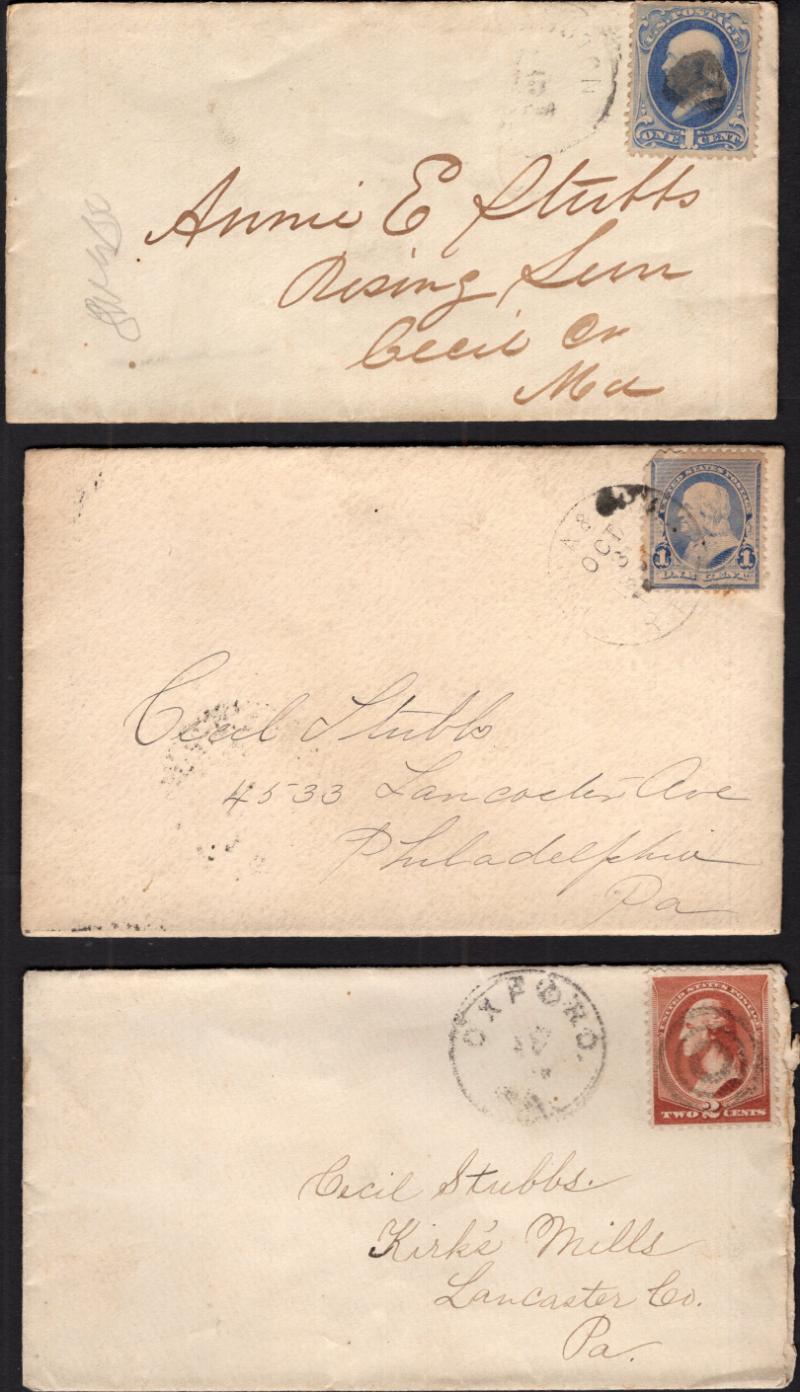 U.S. POSTAGE
ONE 1 CENT
Annie E Stubbs
Rising Sun
Cecil Co
Md
UNITED STATES POSTAGE
1 1
ONE CENT
A &
OCT
3
Cecil Stubbs
4533 Lancaster Ave
Philadelphia
Pa
OXFORD.
PA
UNITED STATES POSTAGE
2
TWO CENTS
Cecil Stubbs.
Kirk's Mills
Lancaster Co.
Pa.